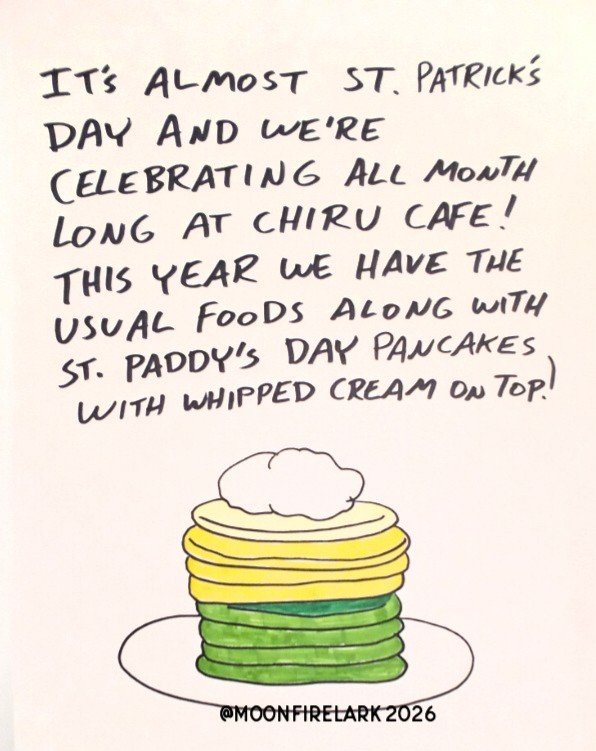 IT'S ALMOST ST. PATRICK'S
DAY AND WE'RE
CELEBRATING ALL MONTH
LONG AT CHIRU CAFE!
THIS YEAR WE HAVE THE
USUAL FOODS ALONG WITH
ST. PADDY'S DAY PANCAKES
WITH WHIPPED CREAM ON TOP!
@MOONFIRELARK 2026